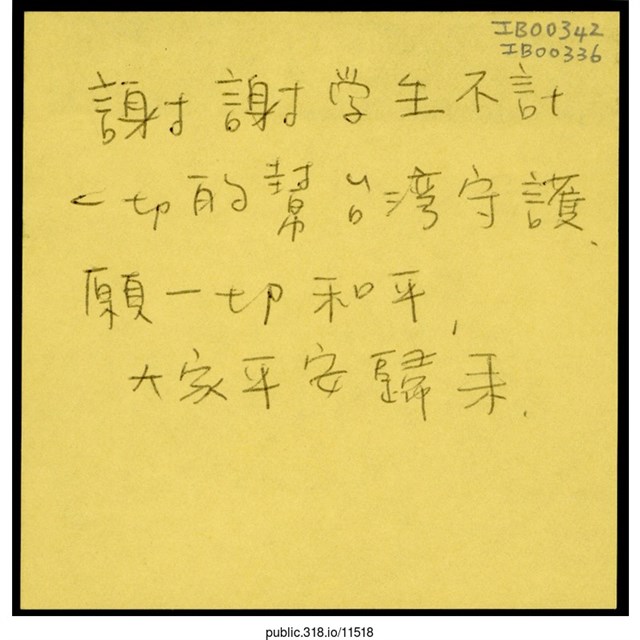 IB00342
IB00336
謝謝学生不計
一切的幫台湾守護、
願一切和平,
大家平安歸来.
public.318.io/11518